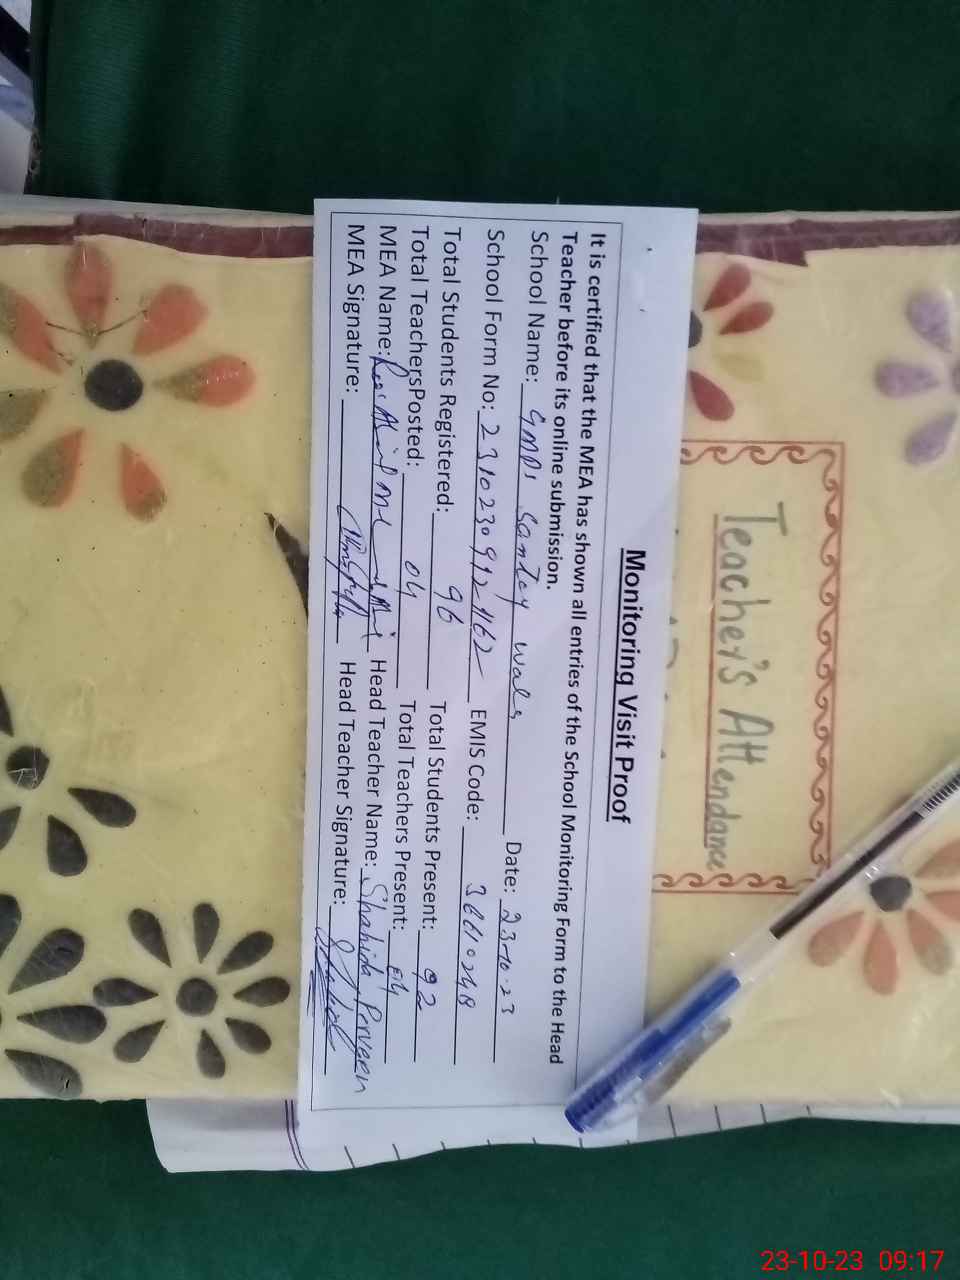 Monitoring Visit Proof
It is certified that the MEA has shown all entries of the School Monitoring Form to the Head
Teacher before its online submission.
School Name: GMPS Sandey wala Date: 23-10-23
School Form No: EMIS Code: 36610248
Total Students Registered: 96 Total Students Present: 92
Total TeachersPosted: 04 Total Teachers Present: 04
MEA Name: Head Teacher Name: Shahida Perveen
MEA Signature: Head Teacher Signature:
Teacher's Attendance
23-10-23 09:17